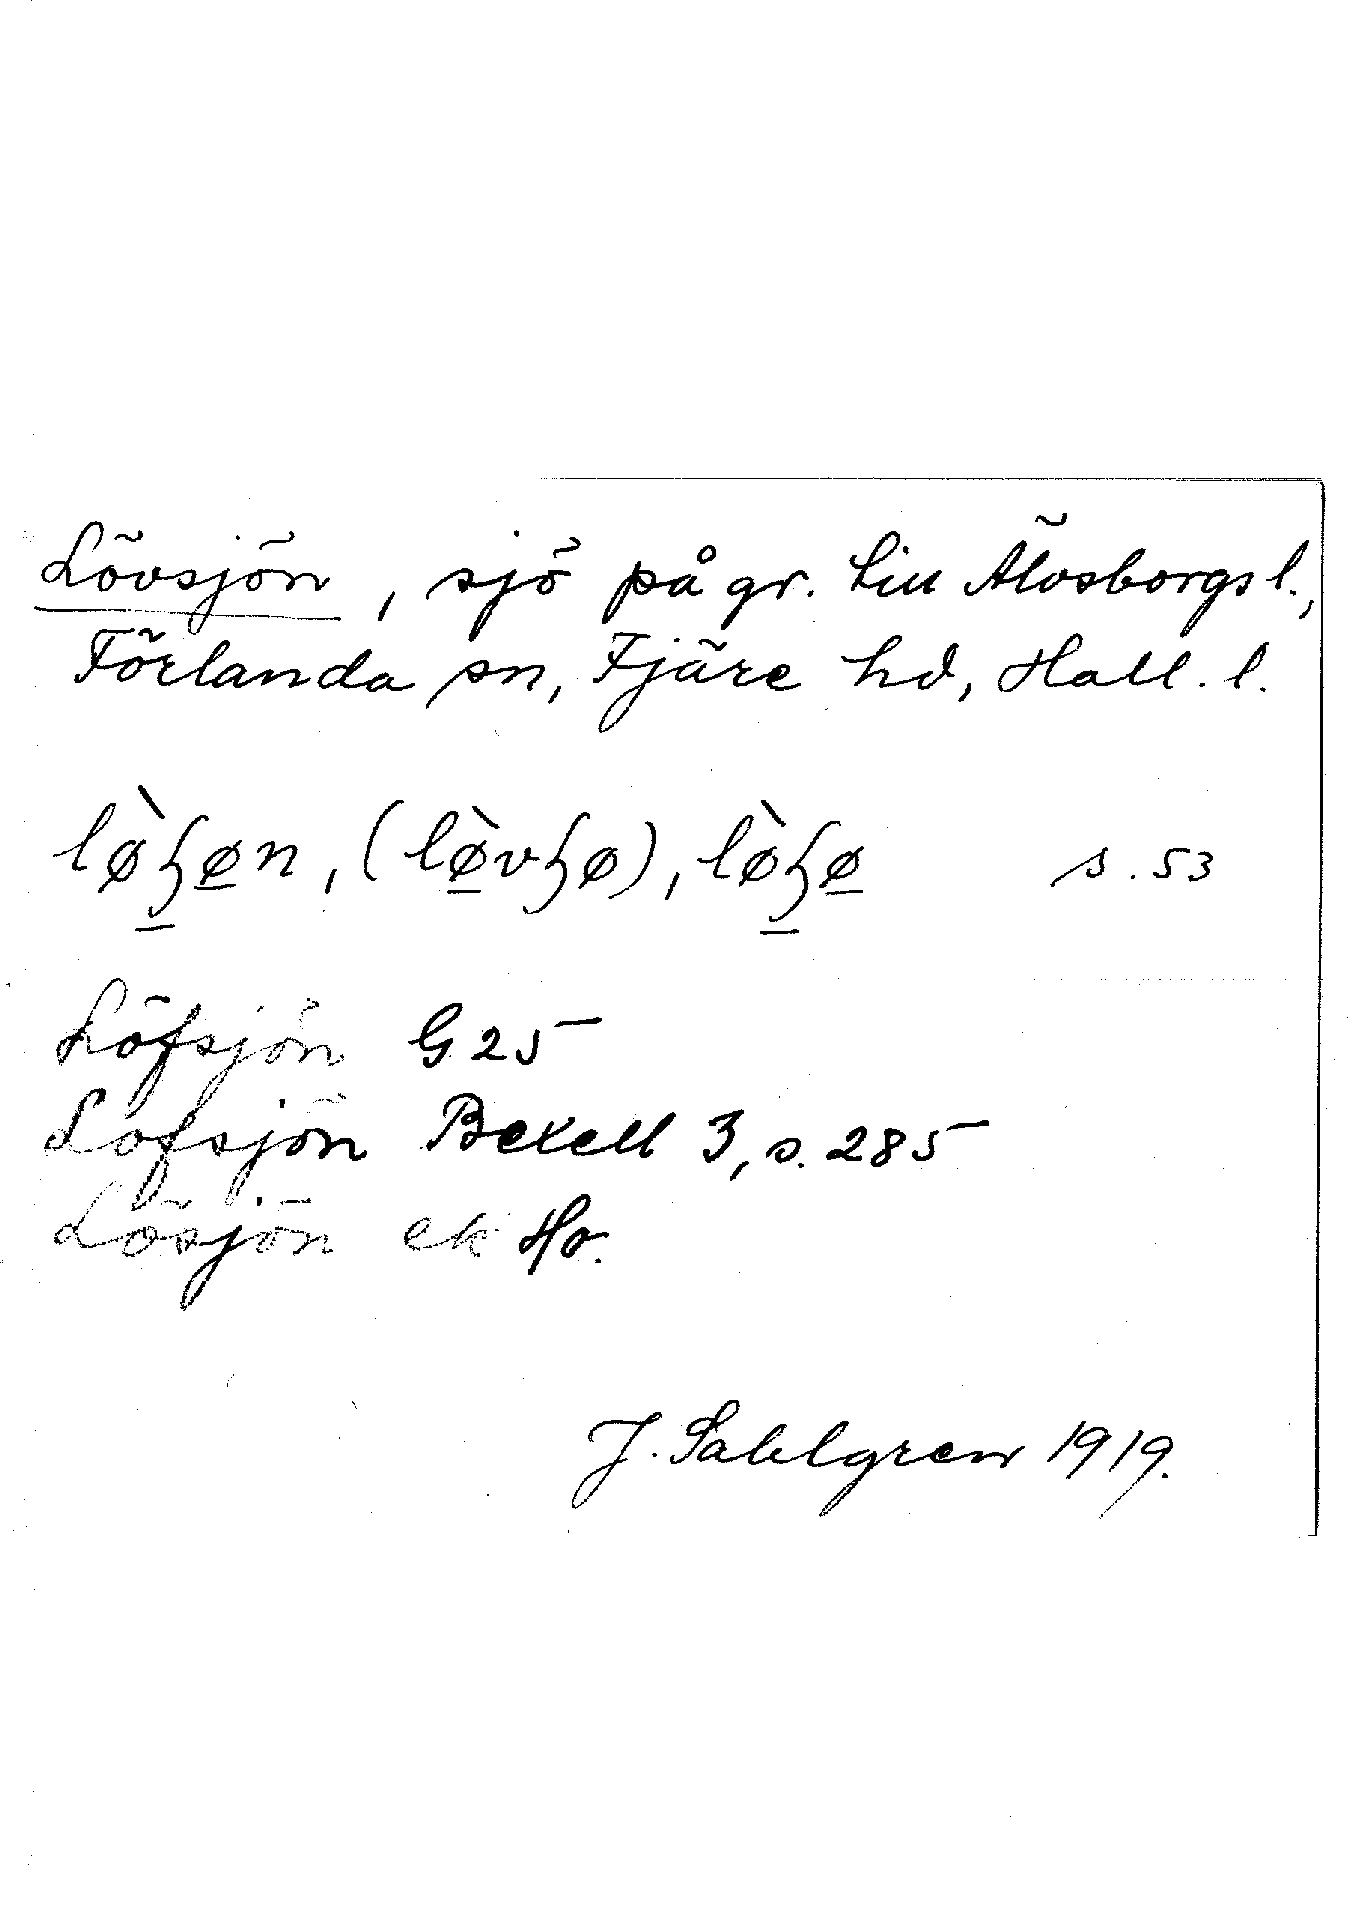 Lövsjön, sjö på gr. till Älvsborgs l.,
Förlanda sn, Fjäre hd, Hall. l.
lø̀ꜧøn, (lø̀vꜧø), lø̀ꜧø s. 53
Löfsjön G 25
Löfsjön Bexell 3, s. 285
Lösjön ek Hr.
J. Sahlgren 1919.